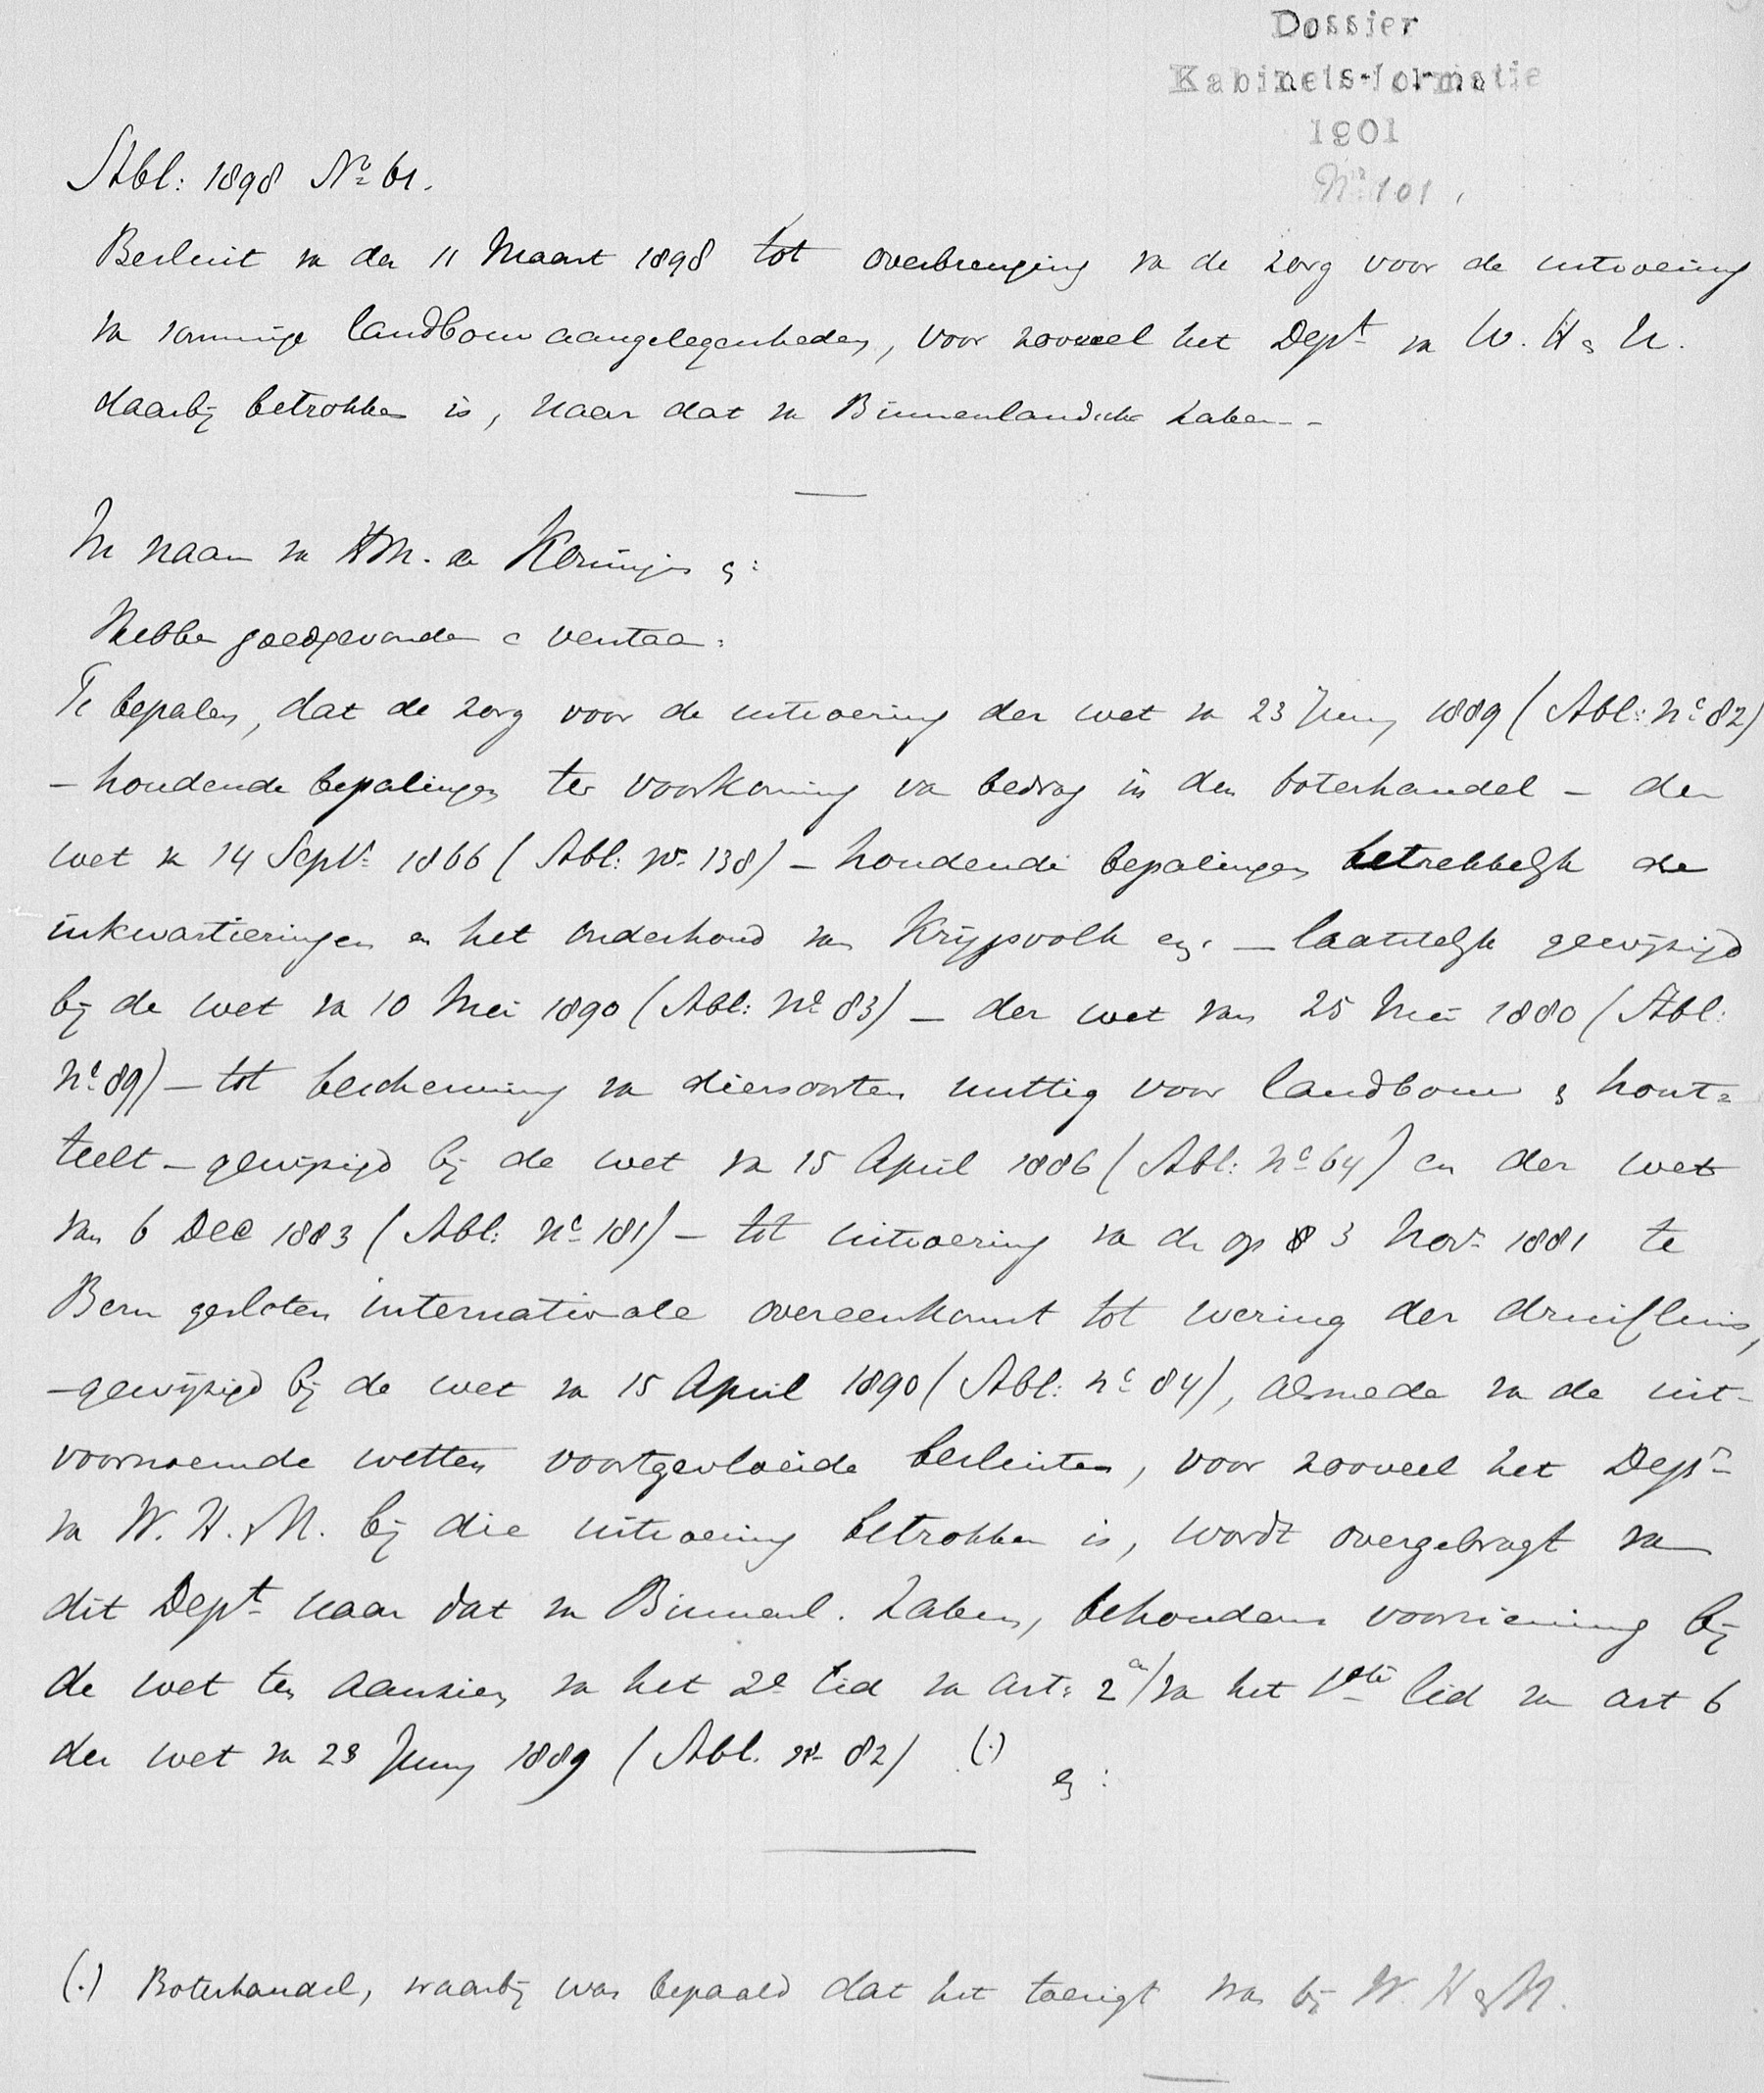 Dossier
Kabinets-formatie
1901
No 101.
Stbl: 1898 No 61.
Besluit van den 11 Maart 1898 tot overbrenging van de zorg voor de uitvoering
van sommige landbouwaangelegenheden, voor zooveel het Dept van W. H & N.
daarbij betrokken is, naar dat van Binnenlandsche Zaken--
In naam van HM. de Koningin &:
Hebben goedgevonden & verstaan:
Te bepalen, dat de zorg voor de uitvoering der wet van 23 Juny 1889 (Stbl: No 82)
- houdende bepalingen ter voorkoming van bedrog in den boterhandel - der
wet van 14 Septr 1866 (Stbl: No 138) - houdende bepalingen betrekkelijk de
inkwartieringen en het onderhoud van Krijgsvolk enz. - laatstelijk gewijzigd
bij de wet van 10 Mei 1890 (Stbl: No 83) - der wet van 25 Mei 1880 (Stbl:
No 89) - tot bescherming van diersoorten nuttig voor landbouw & hout=
teelt - gewijzigd bij de wet van 15 April 1886 (Stbl: No 64) en der wet
van 6 Dec 1883 (Stbl: No 181) - tot uitvoering van de op 3 Novr 1881 te
Bern gesloten internationale overeenkomst tot wering der druifluis,
- gewijzigd bij de wet van 15 April 1890 (Stbl: No 84), alsmede van de uit-
voornoemde wetten voortgevloeide besluiten, voor zooveel het Dept
van W. H. & N. bij die uitvoering betrokken is, wordt overgebragt van
dit Dept naar dat van Binnenl. Zaken, behoudens voorziening bij
de wet ten aanzien van het 2e lid van art: 2 en/van het 1ste lid van art 6
der wet van 23 Juny 1889 (Stbl. No 82) (.)
enz:
(.) Boterhandel, waarbij was bepaald dat het toezigt was bij W. H & N.